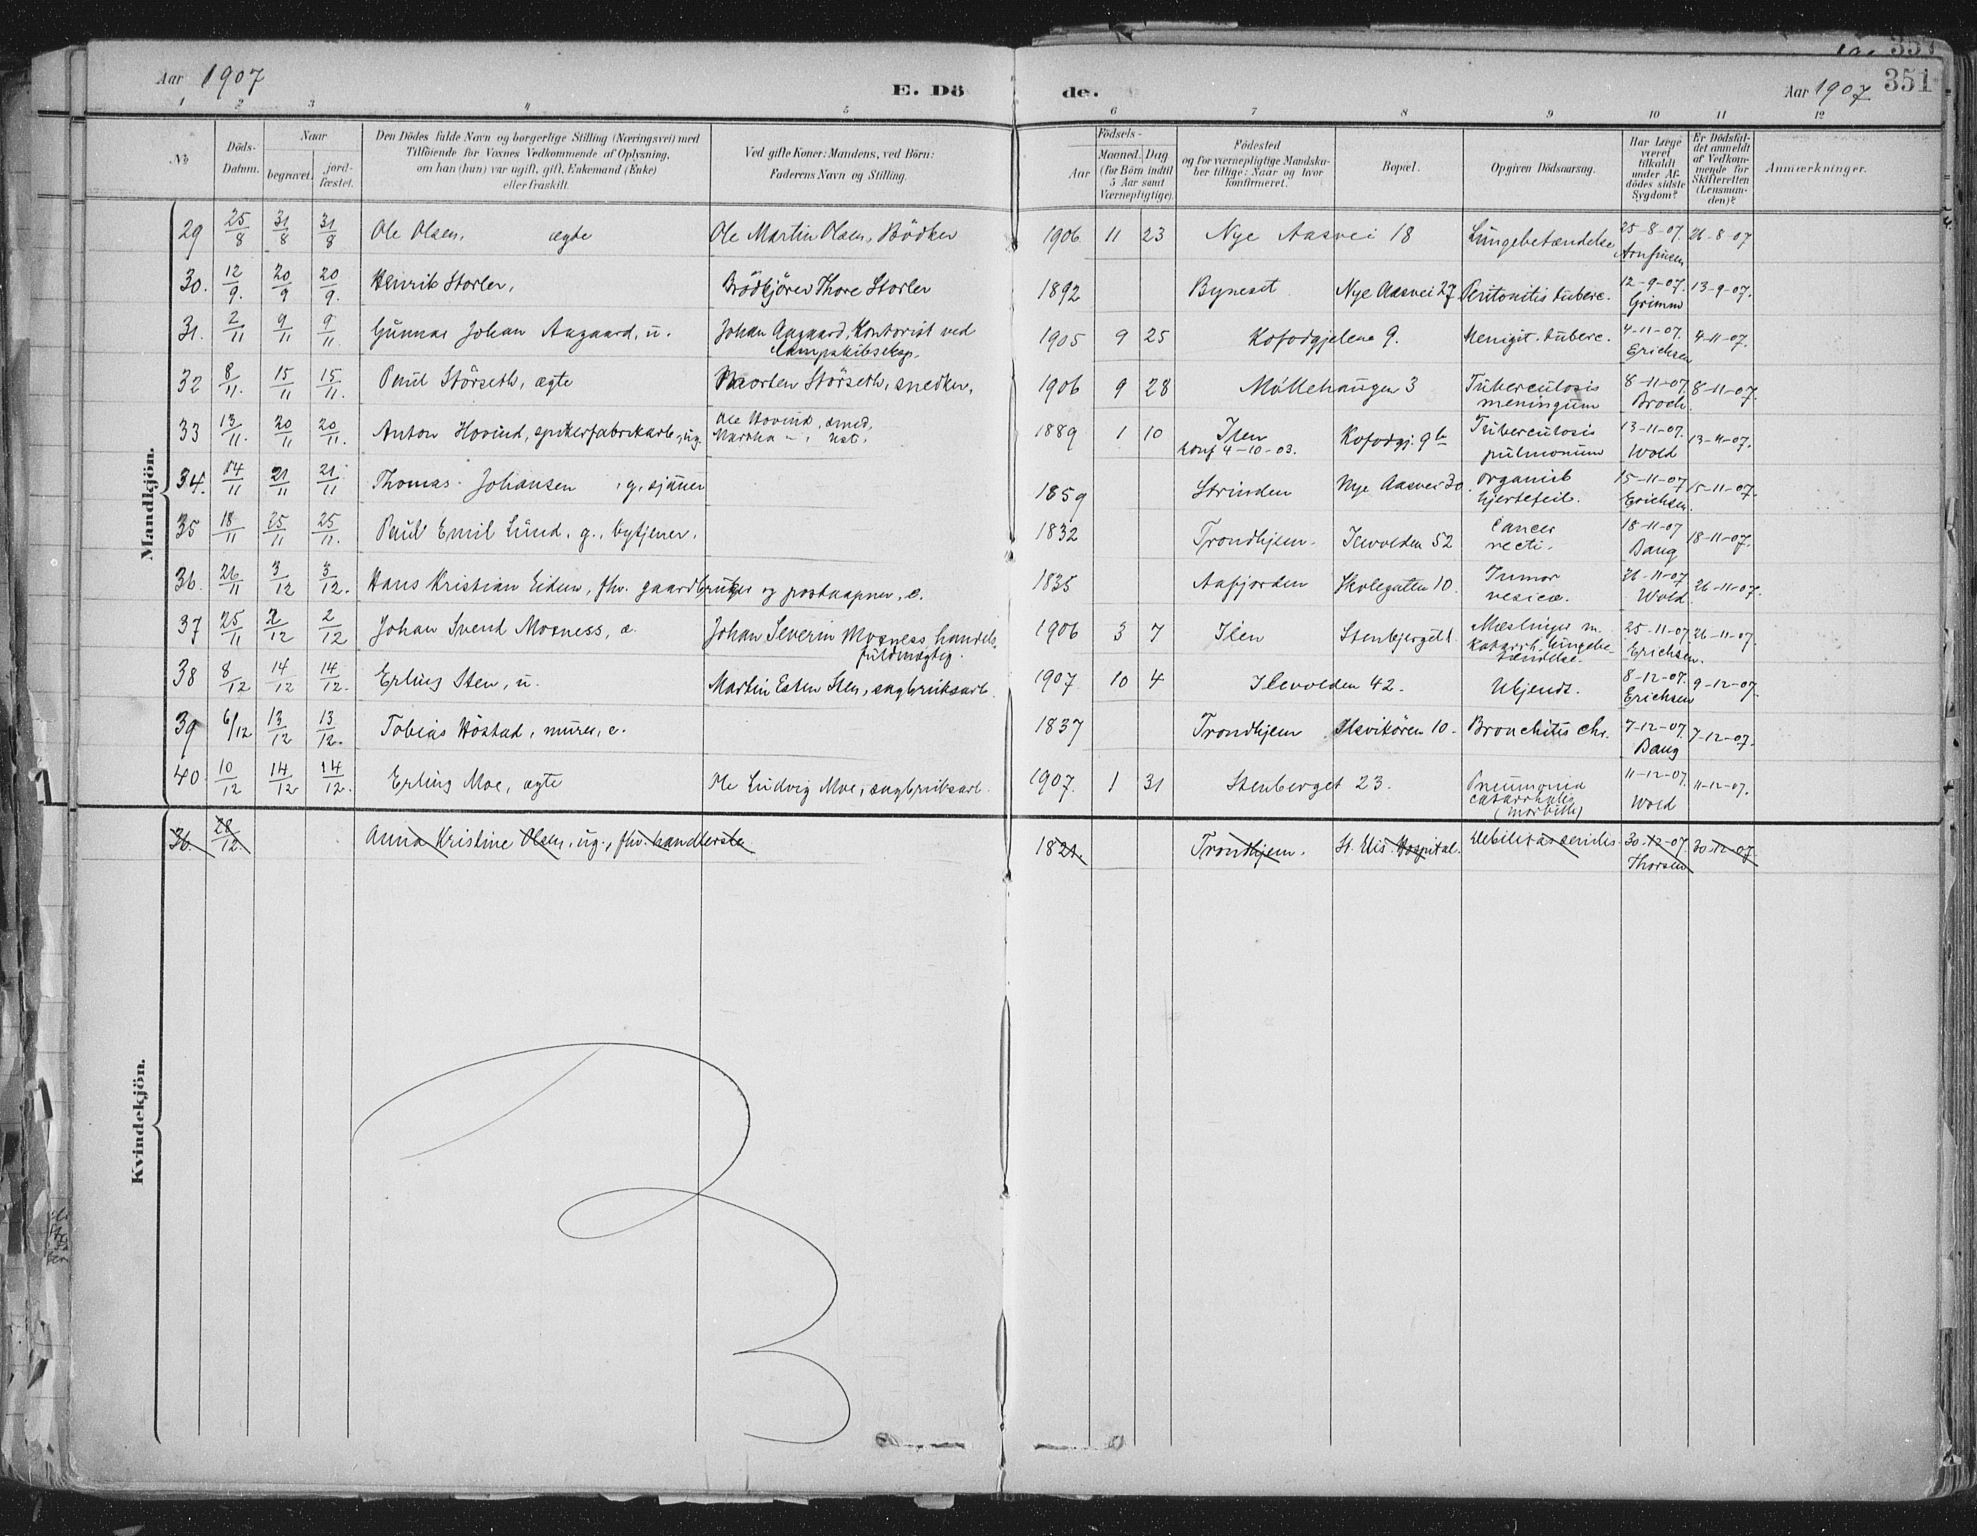 Aar 1907
E. Dö de.
Aar 1907
351
1 2 3 4 5 6 7 8 9 10 11 12
No
Döds-Datum.
Naar
begravet.
jord-fæstet.
Den Dödes fulde Navn og borgerlige Stilling (Næringsvei) med
Tilföiende for Voxnes Vedkommende af Oplysning,
om han (hun) var ugift, gift, Enkemand (Enke)
eller fraskilt.
Ved gifte Koner: Mandens, ved Börn:
Faderens Navn og Stilling.
Födsels-
Aar
Maaned. Dag
(for Börn indtil
5 Aar samt
Værnepligtige).
Födested
og for værnepligtige Mandska-
ber tillige: Naar og hvor
konfirmeret.
Bopæl.
Opgiven Dödsaarsag.
Har Læge
været
tilkaldt
under Af-
dödes sidste
Sygdom?
Er Dödsfal-
det anmeldt
af Vedkom-
mende for
Skifteretten
(Lensman-
den)?
Anmærkninger.
Mandkjön.
29 25/8 31/8 31/8 Ole Olsen, ægte Ole Martin Olsen, Bödker 1906 11 23 Nye Aasvei 18 Lungebetændelse 25-8-07. Arnfinsen 26-8-07
30. 12/9. 20/9 20/9. Henrik Storler, Brödkjörer Thore Storler 1892 Bynesset Nye Aasvei 27 Peritonitis tuberc. 12-9-07. Grimm 13-9-07.
31. 2/11 9/11 9/11. Gunnar Johan Aagaard, u. Johan Aagaard, Kontorist ved
Dampskibsselsk. 1905 9 25 Kofodgjelena 9. Menigit. tuberc. 4-11-07. Erichsen 4-11-07.
32 8/11. 15/11 15/11. Paul Störseth, ægte Morten Störseth, snedker, 1906 9 28 Möllehaugen 3 Tuberculosis
meningum 8-11-07. Broch. 8-11-07.
33 13/11. 20/11 20/11. Anton Hovind, spikerfabrikarb., ug. Ole Hovind, smed,
Martha - " 1889 1 10 Ilen
konf 4-10-03. Kofodgj. 9b Tuberculosis
pulmonum 13-11-07. Wold 13-11-07.
34. 14/11 21/11 21/11 Thomas Johansen, g, sjauer 1859 Strinden Nye Aasvei 30. organisk
hjertefeil. 15-11-07 Erichsen. 15-11-07.
35 18/11 25/11 25/11. Paul Emil Lund, g., bytjener. 1832 Trondhjem. Ilevolden 52 Cancer
recti. 18-11-07 Daug 18-11-07.
36. 26/11 3/12 3/12. Hans Kristian Eidem, fhv. gaardbruger og postaapner, e. 1835 Aafjorden Skolegatten 10. Tumor
vesicæ. 26-11-07 Wold. 26-11-07.
37 25/11 2/12 2/12 Johan Svend Mosness, æ. Johan Severin Mosness handels-
fuldmægtig. 1906 3 7 Ilen Stenbjerget 1. Mæslinger m.
Katarrh. lungebe-
tændelse. 25-11-07 Erichsen. 26-11-07.
38 8/12 14/12 14/12. Erling Sten, u. Martin Esten Sten, sagbruksarb. 1907 10 4 Ilevolden 42. Ukjendt. 8-12-07. Erichsen 9-12-07.
39 6/12 13/12 13/12. Tobias Höstad, murer, e. 1837 Trondhjem Ilsvikören 10. Bronchitis chr. 7-12-07. Daug 7-12-07.
40. 10/12 14/12 14/12. Erling Moe, ægte Ole Ludvig Moe, sagbruksarb. 1907. 1 31 Stenberget 23. Pneumonia
catarrhalis
(morbilli) 11-12-07. Wold 11-12-07.
Kvindekjön.
36. 28/12 Anna Kristine Olsen, ug., fhv. handlerske 1821. Trondhjem. St. Elis. Hospital. Debilitas senilis 30-12-07 Thorsen 30-12-07